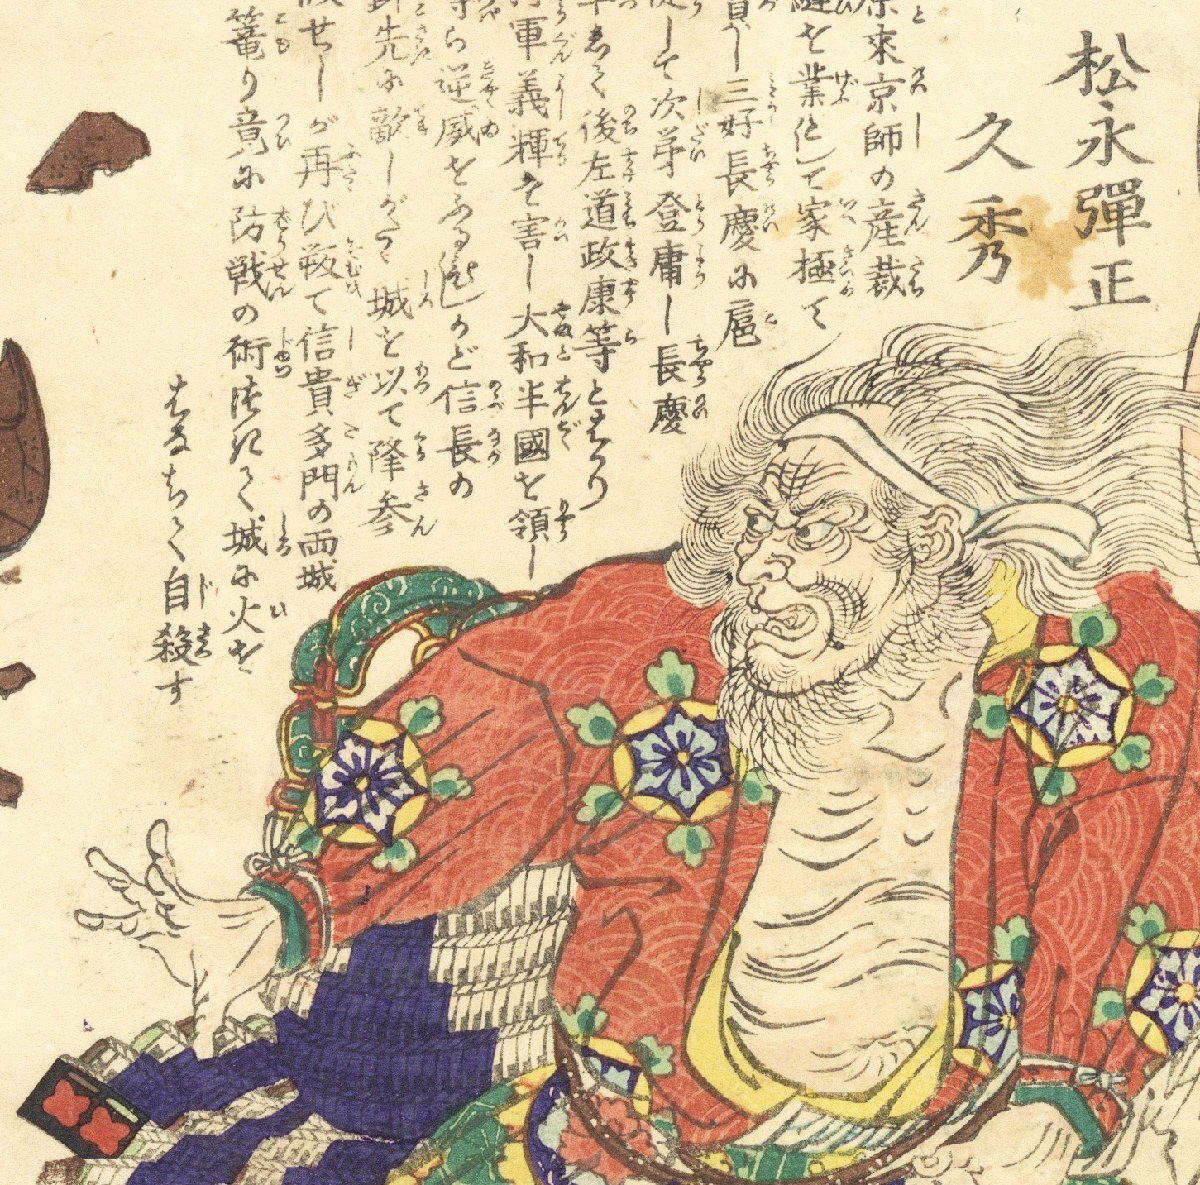 松永彈正
久秀
原來京師の産裁
縫を業として家極て
三好長慶に扈
従して次第登庸し長慶
後左道政康等とはかり
軍義輝を害し大和半國を領し
等ら逆威をふるひしかど信長の
先に敵しがたく城を以て降参
せしが再び叛て信貴多門の両城
篭り竟に防戦の術つきて城に火を
はなちて自殺す